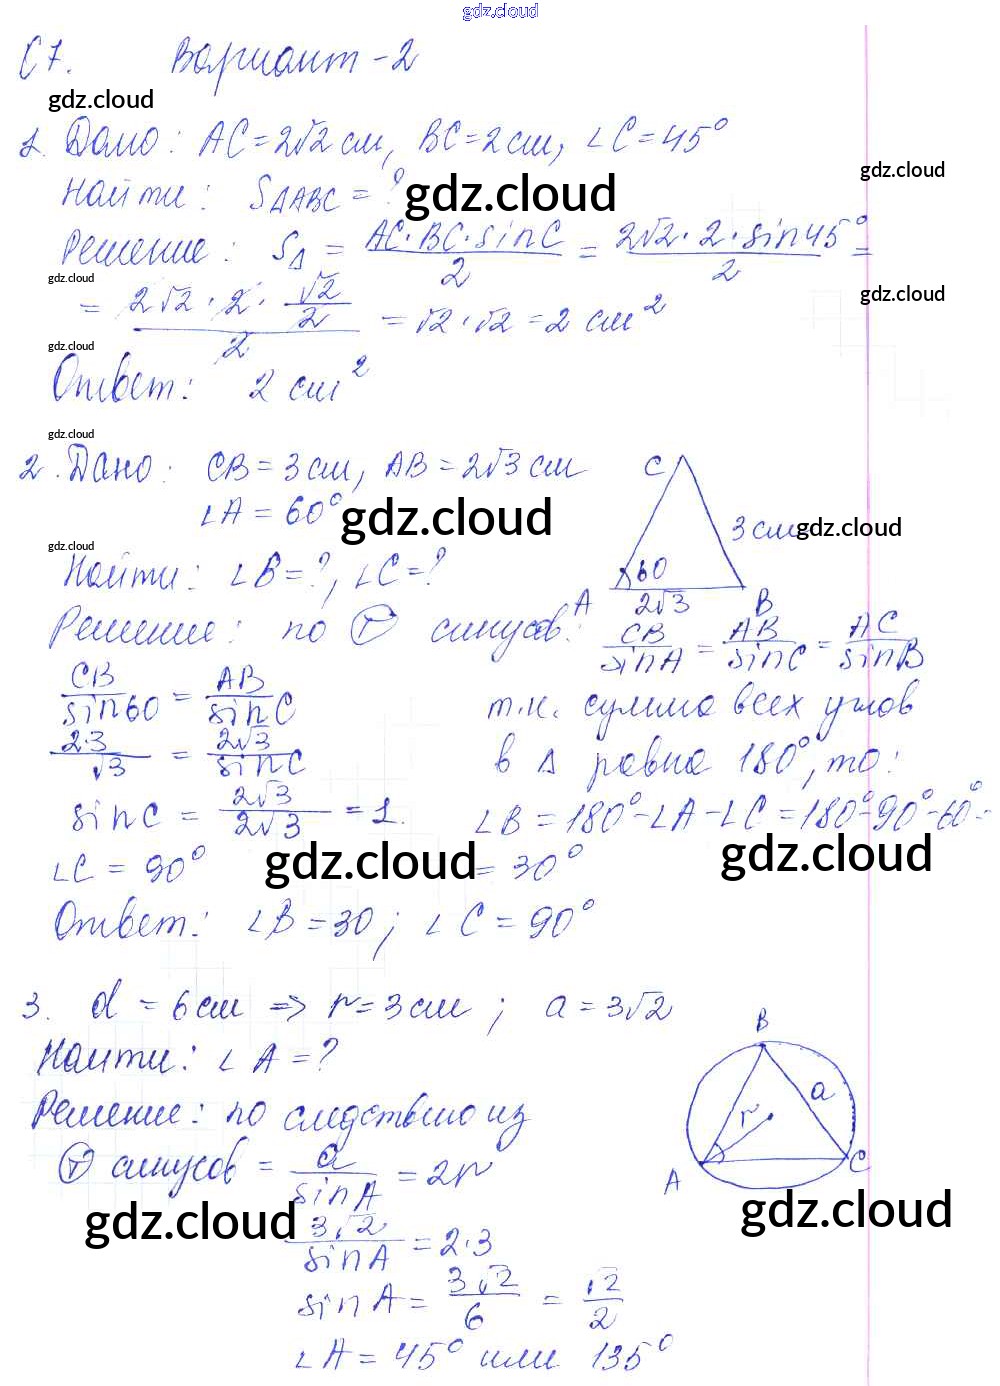 gdz.cloud
С7. Вариант-2
gdz.cloud
1. Дано: AC=2√2 см, BC=2см, ∠C=45°
gdz.cloud
Найти: S△ABC = ?
gdz.cloud
Решение: S△ = AC·BC·sinC / 2 = 2√2·2·sin45° / 2 =
gdz.cloud
gdz.cloud
= 2√2·2·√2/2 / 2 = √2·√2 = 2 см²
gdz.cloud
Ответ: 2 см²
gdz.cloud
2. Дано: CB = 3 см, AB = 2√3 см
∠A = 60°
gdz.cloud
C
3 см
gdz.cloud
60
A
2√3
B
gdz.cloud
Найти: ∠B=?, ∠C=?
Решение: по Т синусов: CB/sinA = AB/sinC = AC/sinB
CB/sin60 = AB/sinC
т.к. сумма всех углов
2·3/√3 = 2√3/sinC
в △ равна 180°, то:
sinC = 2√3/2√3 = 1.
∠B = 180°-∠A-∠C = 180°-90°-60° =
∠C = 90°
gdz.cloud
= 30°
gdz.cloud
Ответ: ∠B = 30; ∠C = 90°
3. d = 6см => r = 3 см; a = 3√2
Найти: ∠A = ?
B
a
r
A
C
Решение: по следствию из
Т синусов = a/sinA = 2r
gdz.cloud
gdz.cloud
3√2/sinA = 2·3
sinA = 3√2/6 = √2/2
∠A = 45° или 135°